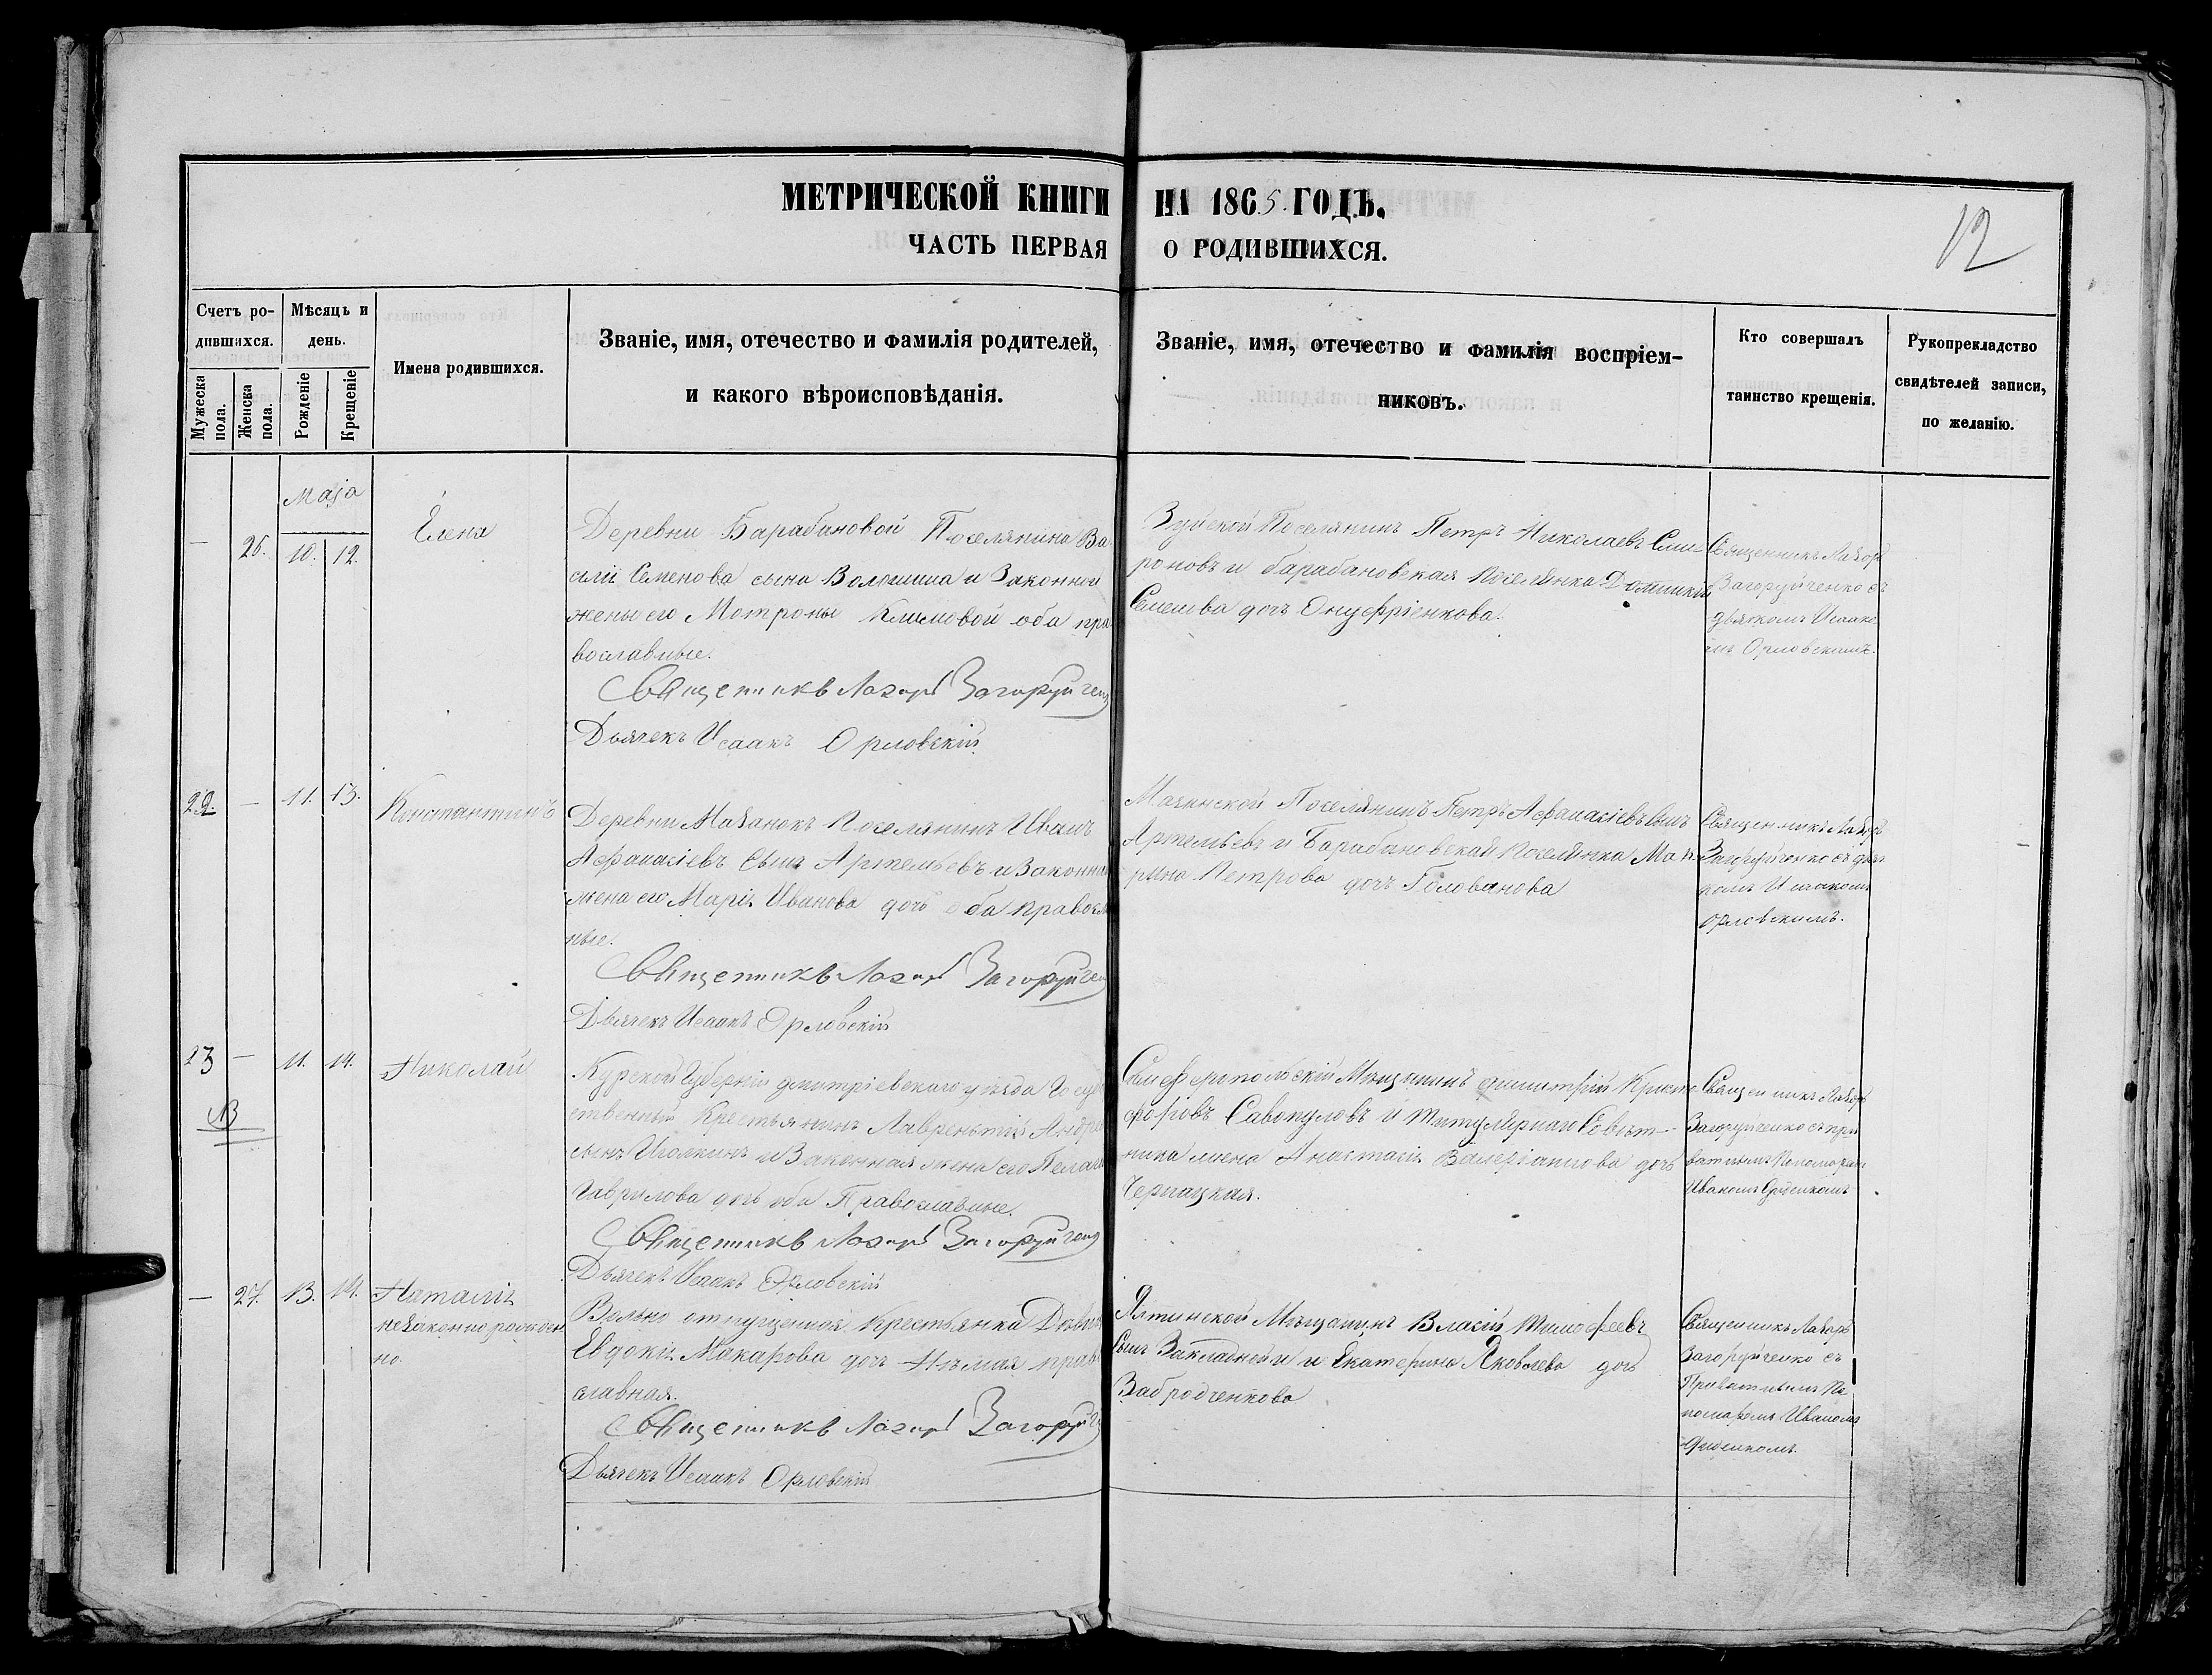 МЕТРИЧЕСКОЙ КНИГИ НА 1865 ГОДЪ.
ЧАСТЬ ПЕРВАЯ О РОДИВШИХСЯ.
12
Счетъ ро-
дившихся.
Мужеска пола.
Женска пола.
Мѣсяцъ и
день.
Рожденіе
Крещеніе
Имена родившихся.
Званіе, имя, отечество и фамилія родителей,
и какого вѣроисповѣданія.
Званіе, имя, отечество и фамилія воспріем-
никовъ.
Кто совершалъ
таинство крещенія.
Рукопрекладство
свидѣтелей записи,
по желанію.
Маія
— 26. 10. 12.
Елена
Деревни Барабановой Поселянина Ва
силія Семенова сына Волошина и Законной
жены его Мотроны Климовой оба пра
вославные.
Священникъ Лазарь Загоруйченко
Дьячекъ Исаакъ Орловскій
Зуйской Поселянинъ Петръ Николаевъ
и барабановская поселянка Домникія
Семенова дочь Онуфріенкова.
Священникъ Лазарь
Загоруйченко съ
дьячкомъ Исаако
мъ Орловскимъ.
22. — 11. 13.
Константинъ
Деревни Мазанокъ поселянинъ Иванъ
Афанасіевъ сынъ Артемьевъ и Законная
жена его Марія Иванова дочь оба правосла
ные.
Священникъ Лазарь Загоруйчен
Дьячекъ Исаакъ Орловскій
Поселянинъ Петръ Афанасіевъ сынъ
Артемьевъ и Барабановская поселянка Мат
рина Петрова дочь Голованова
Священникъ Лазарь
Загоруйченко съ дьяч
комъ Исаакомъ
Орловскимъ.
23 — 11. 14.
Николай
Курской Губерніи дмитріевскаго уѣзда Госуд
ственный Крестьянинъ Лаврентій Андре
сынъ Иголкинъ и Законная жена его Пелаг
Гаврилова дочь оба Православные.
Священникъ Лазарь Загоруйченко
Дьячекъ Исаакъ Орловскій
Симферопольскій Мѣщанинъ Димитрій Христо
форовъ Савопуловъ и Титулярнаго Совѣт-
ника жена Анастасія Валеріанова дочь
Чернацкая.
Священникъ Лазарь
Загоруйченко съ при
ватнымъ Пономарем
Иваномъ
— 27. 13. 14.
Наталія
незаконно рожден
но.
Вольно отпущенная Крестьянка Дѣвиц
Евдокія Макарова дочь Нѣмая прав
славная.
Священникъ Лазарь Загоруйч
Дьячекъ Исаакъ Орловскій
Ялтинской Мѣщанинъ Власій Тимофеевъ
сынъ Закладней и Екатерина Яковлева дочь
Забродченкова
Священникъ Лазарь
Загоруйченко съ
Приватнымъ По
номаремъ Иваномъ